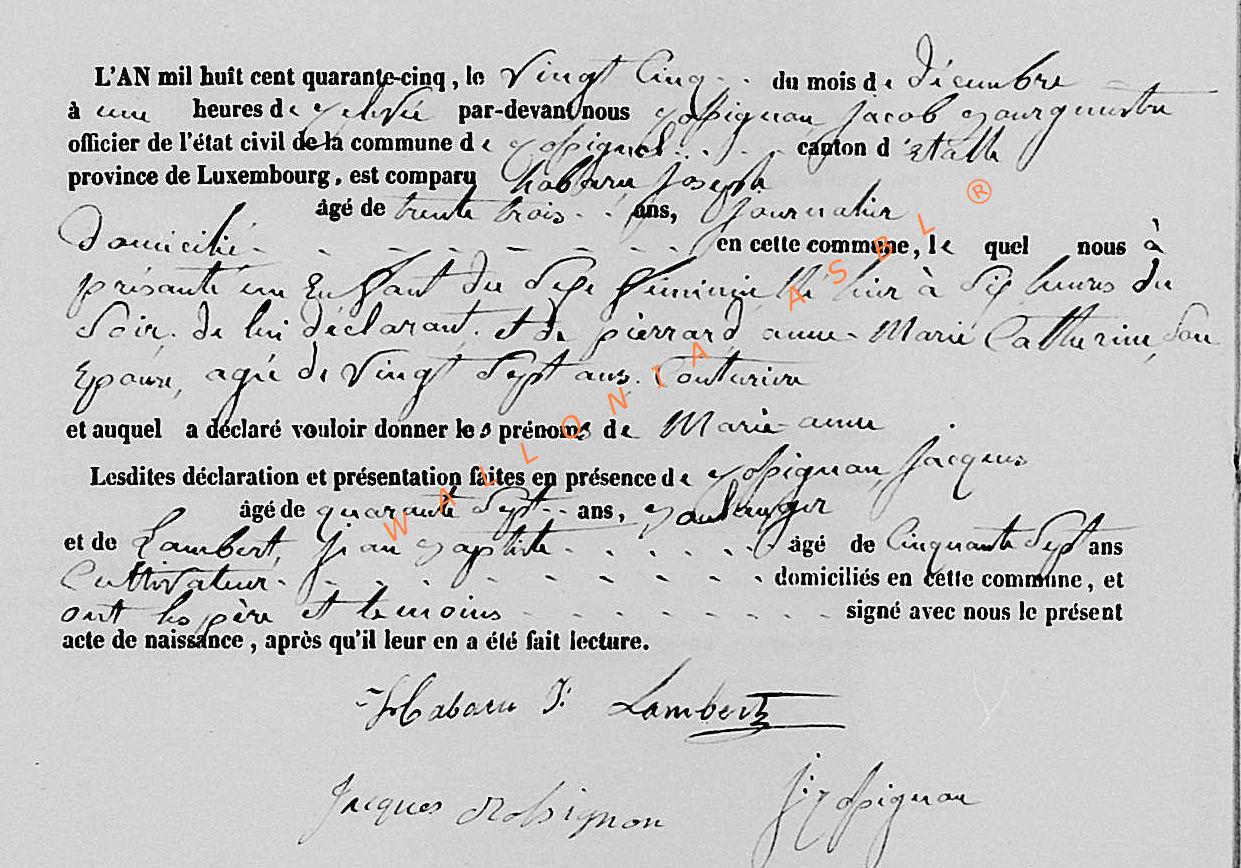 L'AN mil huit cent quarante-cinq, le Vingt Cinq du mois de décembre
à une heures de relevée par-devant nous Rossignon Jacob Bourgmestre
officier de l'état civil de la commune de Rossignol canton d'Etalle
province de Luxembourg, est comparu habaru Joseph
âgé de trente trois ans, Journalier
Domicilié en cette commune, le quel nous à
présenté un Enfant du Sexe féminin né hier à Six heures du
Soir. de lui déclarant. et de pierrard anne-Marie Catherine, son
Epouse, agée de Vingt Sept ans. Couturière
et auquel a déclaré vouloir donner les prénoms de Marie-anne
Lesdites déclaration et présentation faites en présence de Rossignon, Jacques
âgé de quarante Sept ans, Boulanger
et de Lambert, jean Baptiste âgé de Cinquante Sept ans
Cultivateur domiciliés en cette commune, et
ont les père et temoins signé avec nous le présent
acte de naissance, après qu'il leur en a été fait lecture.
Habaru J. Lambert
Jacques Rossignon J. Rossignon
WALLONIA ASBL ®